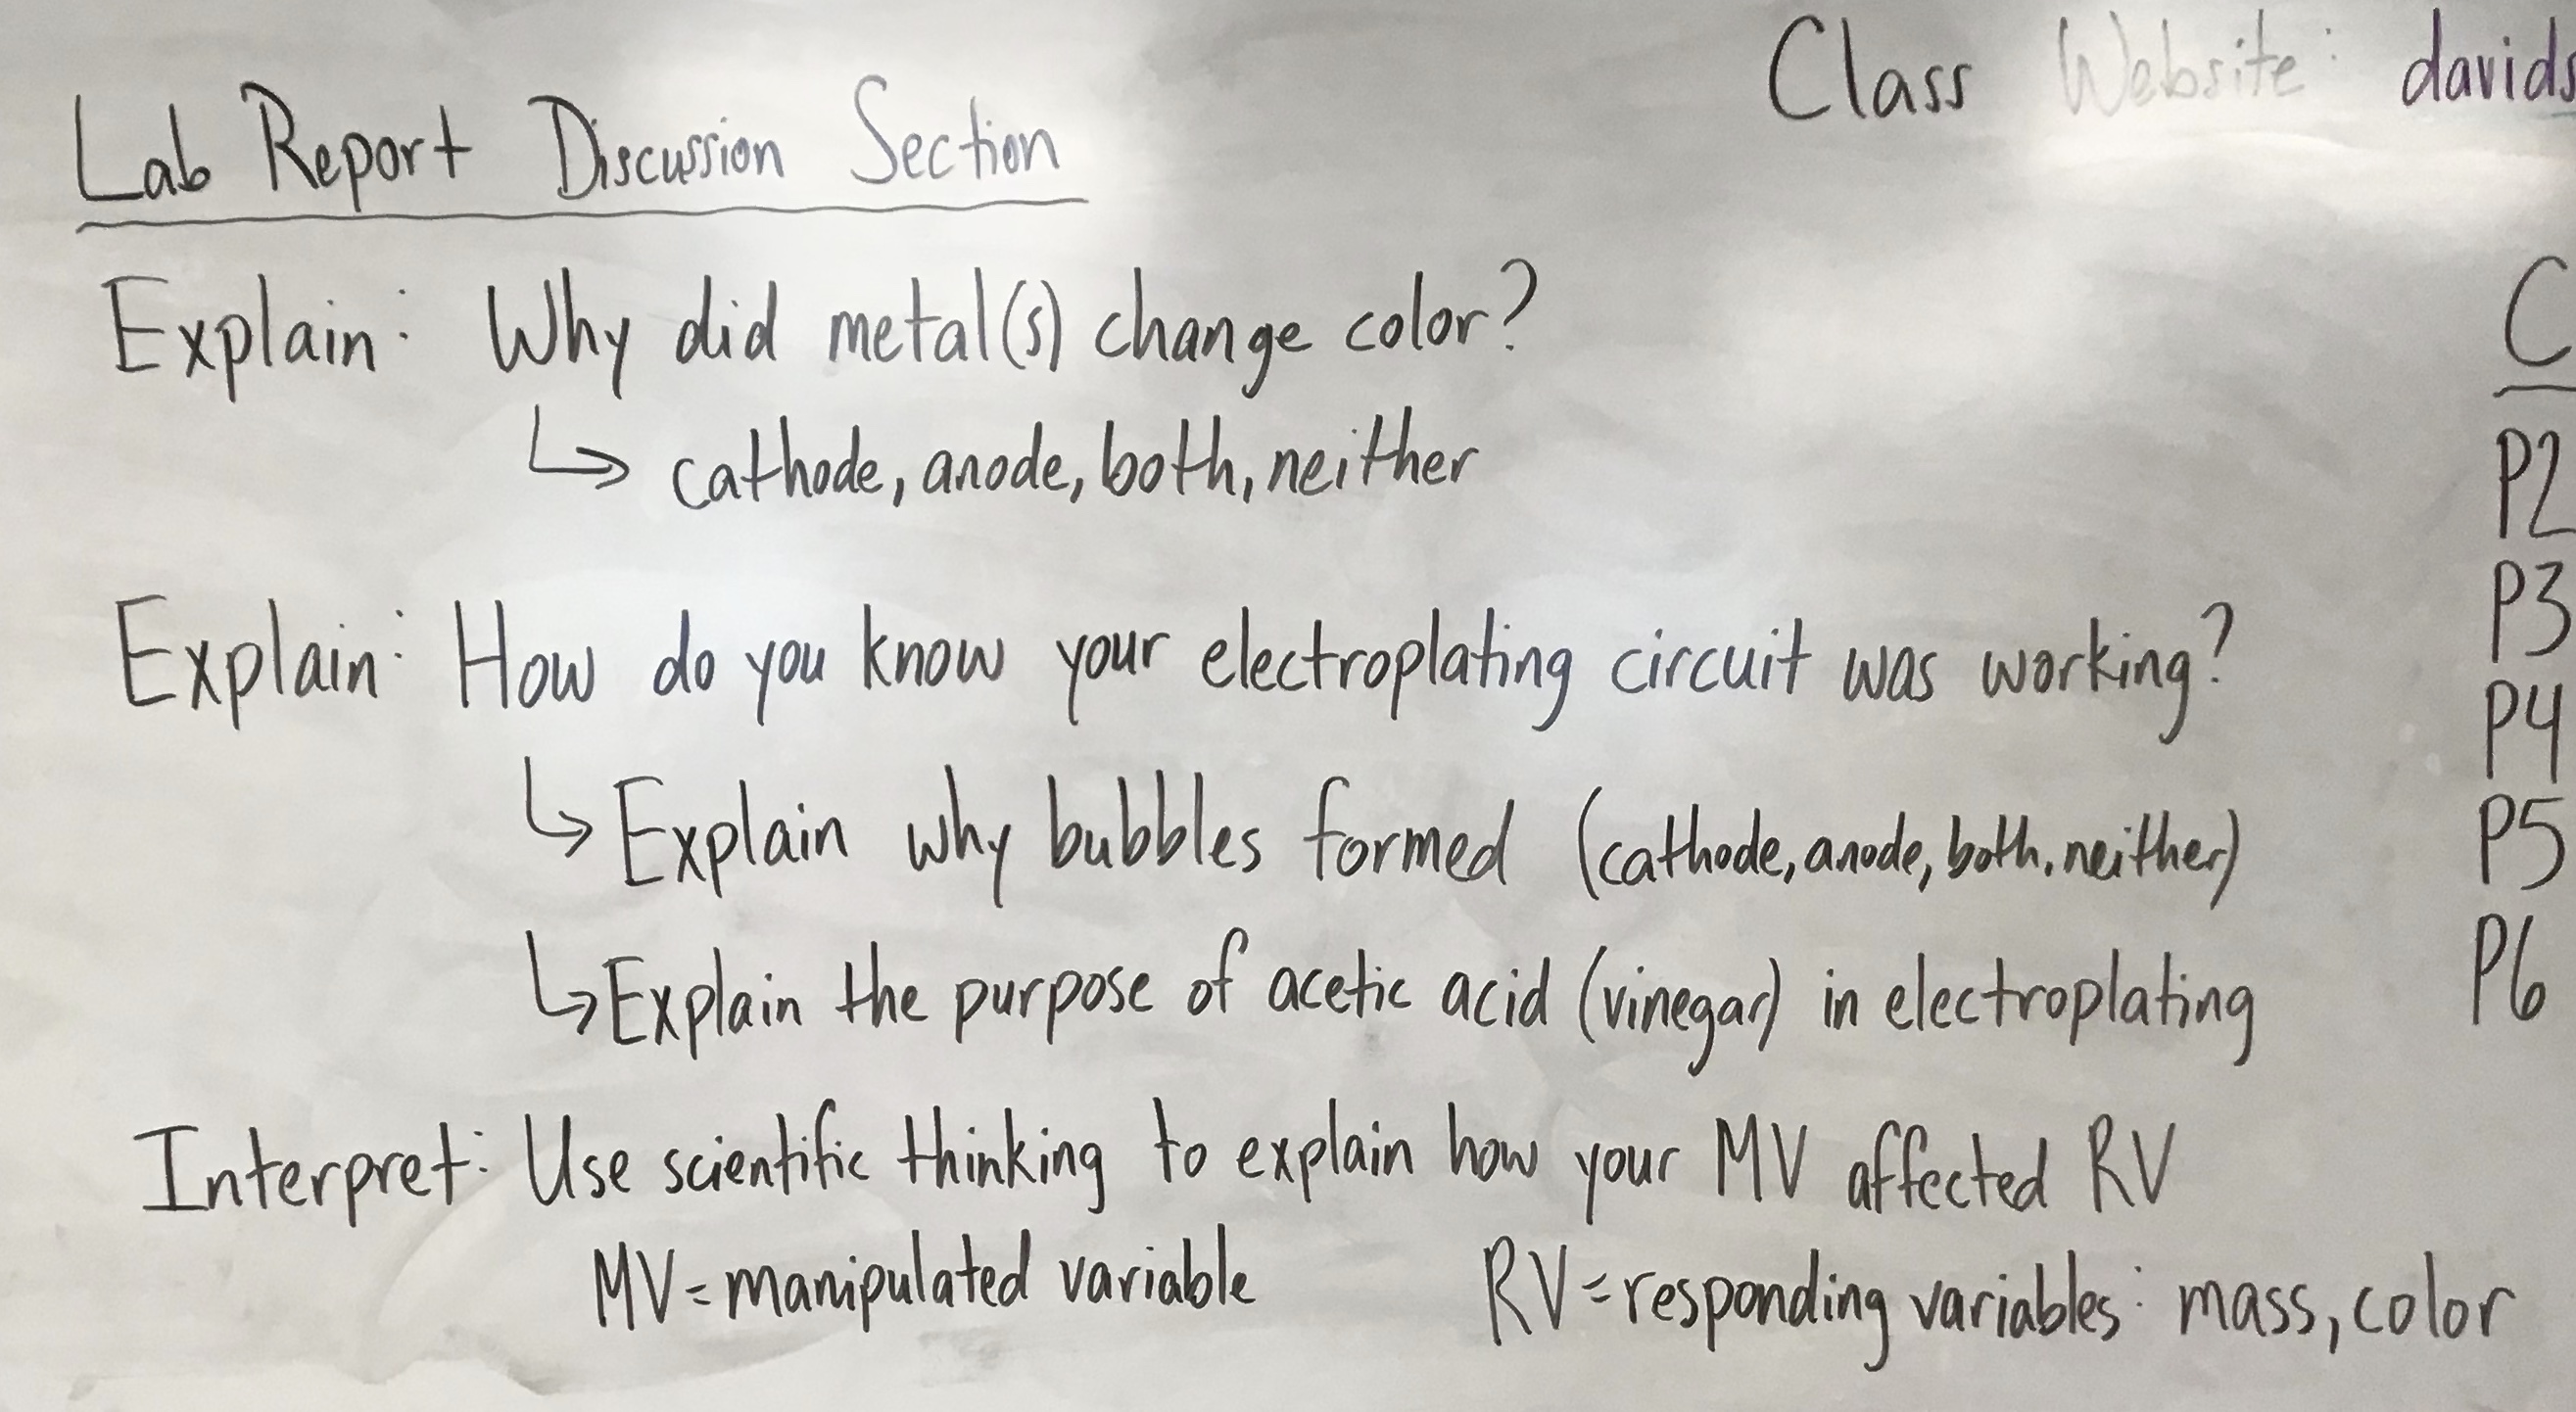 Class Website: davids
Lab Report Discussion Section
Explain: Why did metal(s) change color?
↳ cathode, anode, both, neither
Explain: How do you know your electroplating circuit was working?
↳ Explain why bubbles formed (cathode, anode, both, neither)
↳ Explain the purpose of acetic acid (vinegar) in electroplating
Interpret: Use scientific thinking to explain how your MV affected RV
MV = manipulated variable RV = responding variables: mass, color
C
P2
P3
P4
P5
P6